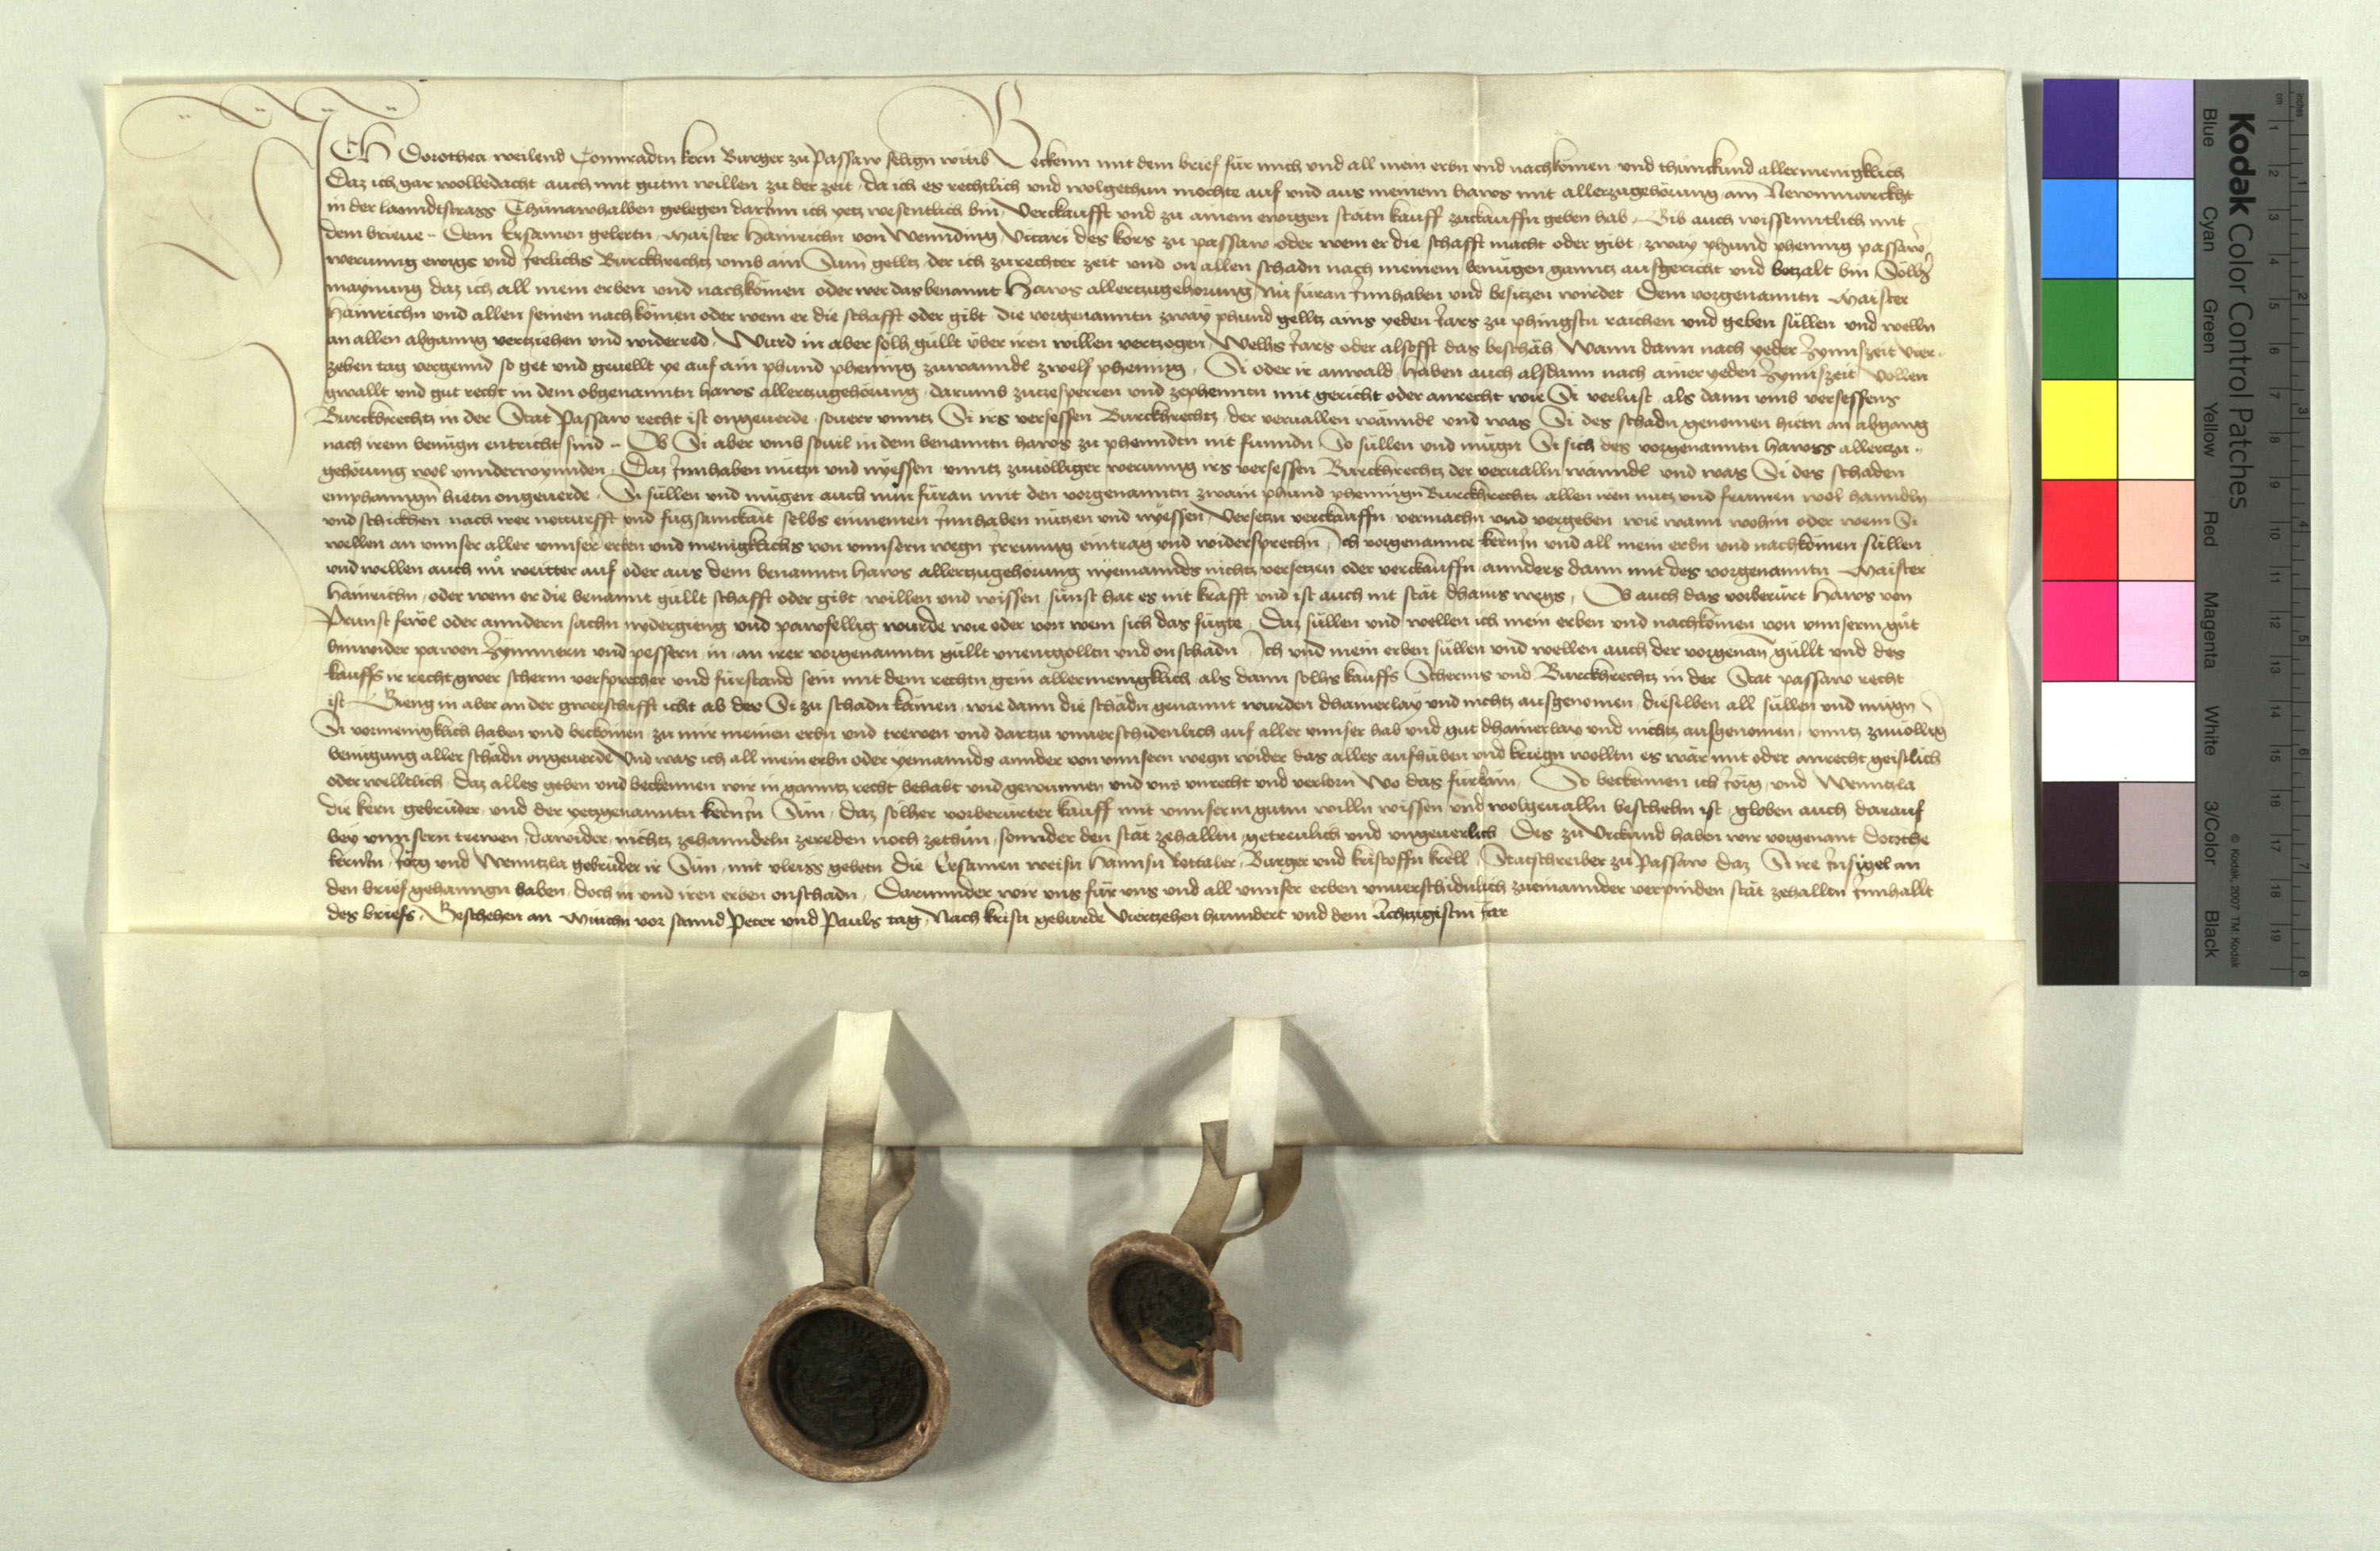 ICH Dorothea weilend Connradtn kern Burger zu Passaw selign witib Bekenn mit dem brief für mich und all mein erbn und nachkömen und thun kund allermenigklich
Daz ich gar wolbedacht auch mit gutm willen zu der zeit da ich es rechtlich und wolgethun mochte auf und aus meinem haws mit allerzugehörung am Newnmarckht
in der lanndtstrass Thünawhalben gelegen darInn ich yetz wesentlich bin verkaufft und zu ainem ewigen statn kauff zukauffn geben hab Gib auch wissenntlich mit
dem brieue Dem Ersamen gelertn Maister Hainrichn von Wemding Vicari des kors zu passaw oder wem er die schafft macht oder gibt zway phund phening passaw
werunng ewigs und Ierlichs Burckhrechtz umb ain Sum gelltz der ich zurechter zeit und on allen schadn nach meinem benügen ganntz ausgericht und betzalt bin Sölhr
maynung daz ich all mein erben und nachkömen oder wer das benannt Haws allertzugehorung nu füran Innhaben und besitzen wurdet Dem vorgenanntn Maister
Hainrichn und allen seinen nachkömen oder wem er die schafft oder gibt die vorgenanntn zway phund gelltz ains yeden Iars zu phingstn raichen und geben süllen und welln
an allen abganng vertziehen und widerred Wurd in aber sölh güllt über iren willen vertzogen Welhs Iars oder alsofft das beschäh Wann dann nach yeder Zynnszeit vier
zehen tag vergennd so get und geuellt ye auf ain phund phening zuwanndl zwelf phening Si oder ir anwald haben auch alsdann nach ainer yeden Zynnszeit vollen
gwallt und gut recht in dem obgenanntn haws allertzugehörung darumb zutzesperren und zephenntn mit gericht oder anrecht wie Si verlust als dann umb versessens
Burckhrechtz in der Stat Passaw recht ist ongeuerde souerr unntz Si irs versessen Burckhrechtz der veruallen wänndl und was Si des schadn genomen hietn an abgang
nach irem benügn entricht sind Ob Si aber umb souil in dem benanntn haws zu phenndtn nit funndn So süllen und mügn Si sich des vorgenanntn hawss allertzu
gehörung wol unnderwynnden Daz Innhaben nützn und nyessen unntz zuuölliger werunng irs versessen Burckhrechtz der verualln wänndl und was Si des schaden
emphanngn hietn ongeuerde Si süllen und mügen auch nün füran mit den vorgenanntn zwain phund phenningn Burckhrechtz allen iren nutz und frumen wol hanndln
und schickhen nach irer notturfft und fugsamckait selbs einnemen Innhaben nützen und nyessen Versetzn verckauffn vermachn und vergeben wie wann wohin oder wem Si
wellen an unnser aller unnser erben und menigklichs von unnsern wegn Irrunng eintrag und widersprechn Ich vorgenannte kernIn und all mein erbn und nachkömen süllen
und wellen auch nu weitter auf oder aus dem benanntn haws allertzugehörung nyemanndes nichtz versetzen oder verckauffn annders dann mit des vorgenanntn Maister
Hainrichn oder wem er die benannt güllt schafft oder gibt willen und wissen sünst hat es nit krafft und ist auch nit stät dhains wegs Ob auch das vorberürt Haws von
Prunst feẅr oder anndern sachn nydergieng und pawfellig wurde wie oder von wem sich das fügte Daz süllen und wellen ich mein erben und nachkömen von unnserm güt
hinwider pawen Zymmern und pessern in an irer vorgenanntn güllt unentgolltn und on schadn Ich und mein erben süllen und wellen auch der vorgenan güllt und des
kauffs ir recht gwer scherm versprecher und fürstand sein mit dem rechtn gein allermenigklich als dann solhs kauffs Scherms und Burckhrechtz in der Stat passaw recht
ist Gieng in aber an der gwerschafft icht ab des Si zu schadn kömen wie dann die schädn genannt wurden dhainerlay und nichtz ausgenomen dieselben all süllen und mügn
Si vormenigklich haben und beckömen zu mir meinen erbn und trewen und dartzu unuerschidenlich auf aller unnser hab und gut dhainerlay und nichtz ausgenomen unntz zuuöllig
benügung aller schädn ongeuerde Und was ich all mein erbn oder yemannds annder von unnsern wegn wider das alles aufhüben und kriegn wolltn es wär mit oder anrecht geistlich
oder welltlich Daz alles geben und beckennen wir in ganntz recht behabt und gewunnen und uns unrecht und verlorn Wo das fürkäm So beckennen ich Iörg und Wenntzla
die kern gebrüder und der yetzgenanntn kernIn Sün Daz sölher vorberürter kauff mit unnserm gutn willn wissen und wolgeualln beschehn ist globen auch darauf
bey unnsern trewen dawider nichtz zehanndeln zereden noch zethün sonnder den stät zehalltn getreulich und ungeuerlich Des zu Urckund haben wir vorgenant Dorothe
kernIn Iörg und Wenntzla gebrüder ir Sün mit vleiss gebetn die Ersamen weisn Hannsn Rottaler Burger und kristoffn krell Statschreiber zu Passaw daz Si ire Insigel an
den brief gehanngn haben doch in und iren erben onschadn Darunnder wir uns für uns und all unnser erben unuerschidnlich zueinannder verpinden stät zehalltn Innhallt
des briefs Beschehen an Mittichn vor sannd Peter und Pauls tag Nach kristi geburde Viertzehen hunndert und dem Achtzigistm Iar
Kodak Color Control Patches
Blue Cyan Green Yellow Red Magenta White 3/Color Black
© Kodak 2007 TM: Kodak
cm 1 2 3 4 5 6 7 8 9 10 11 12 13 14 15 16 17 18 19
inches 1 2 3 4 5 6 7 8